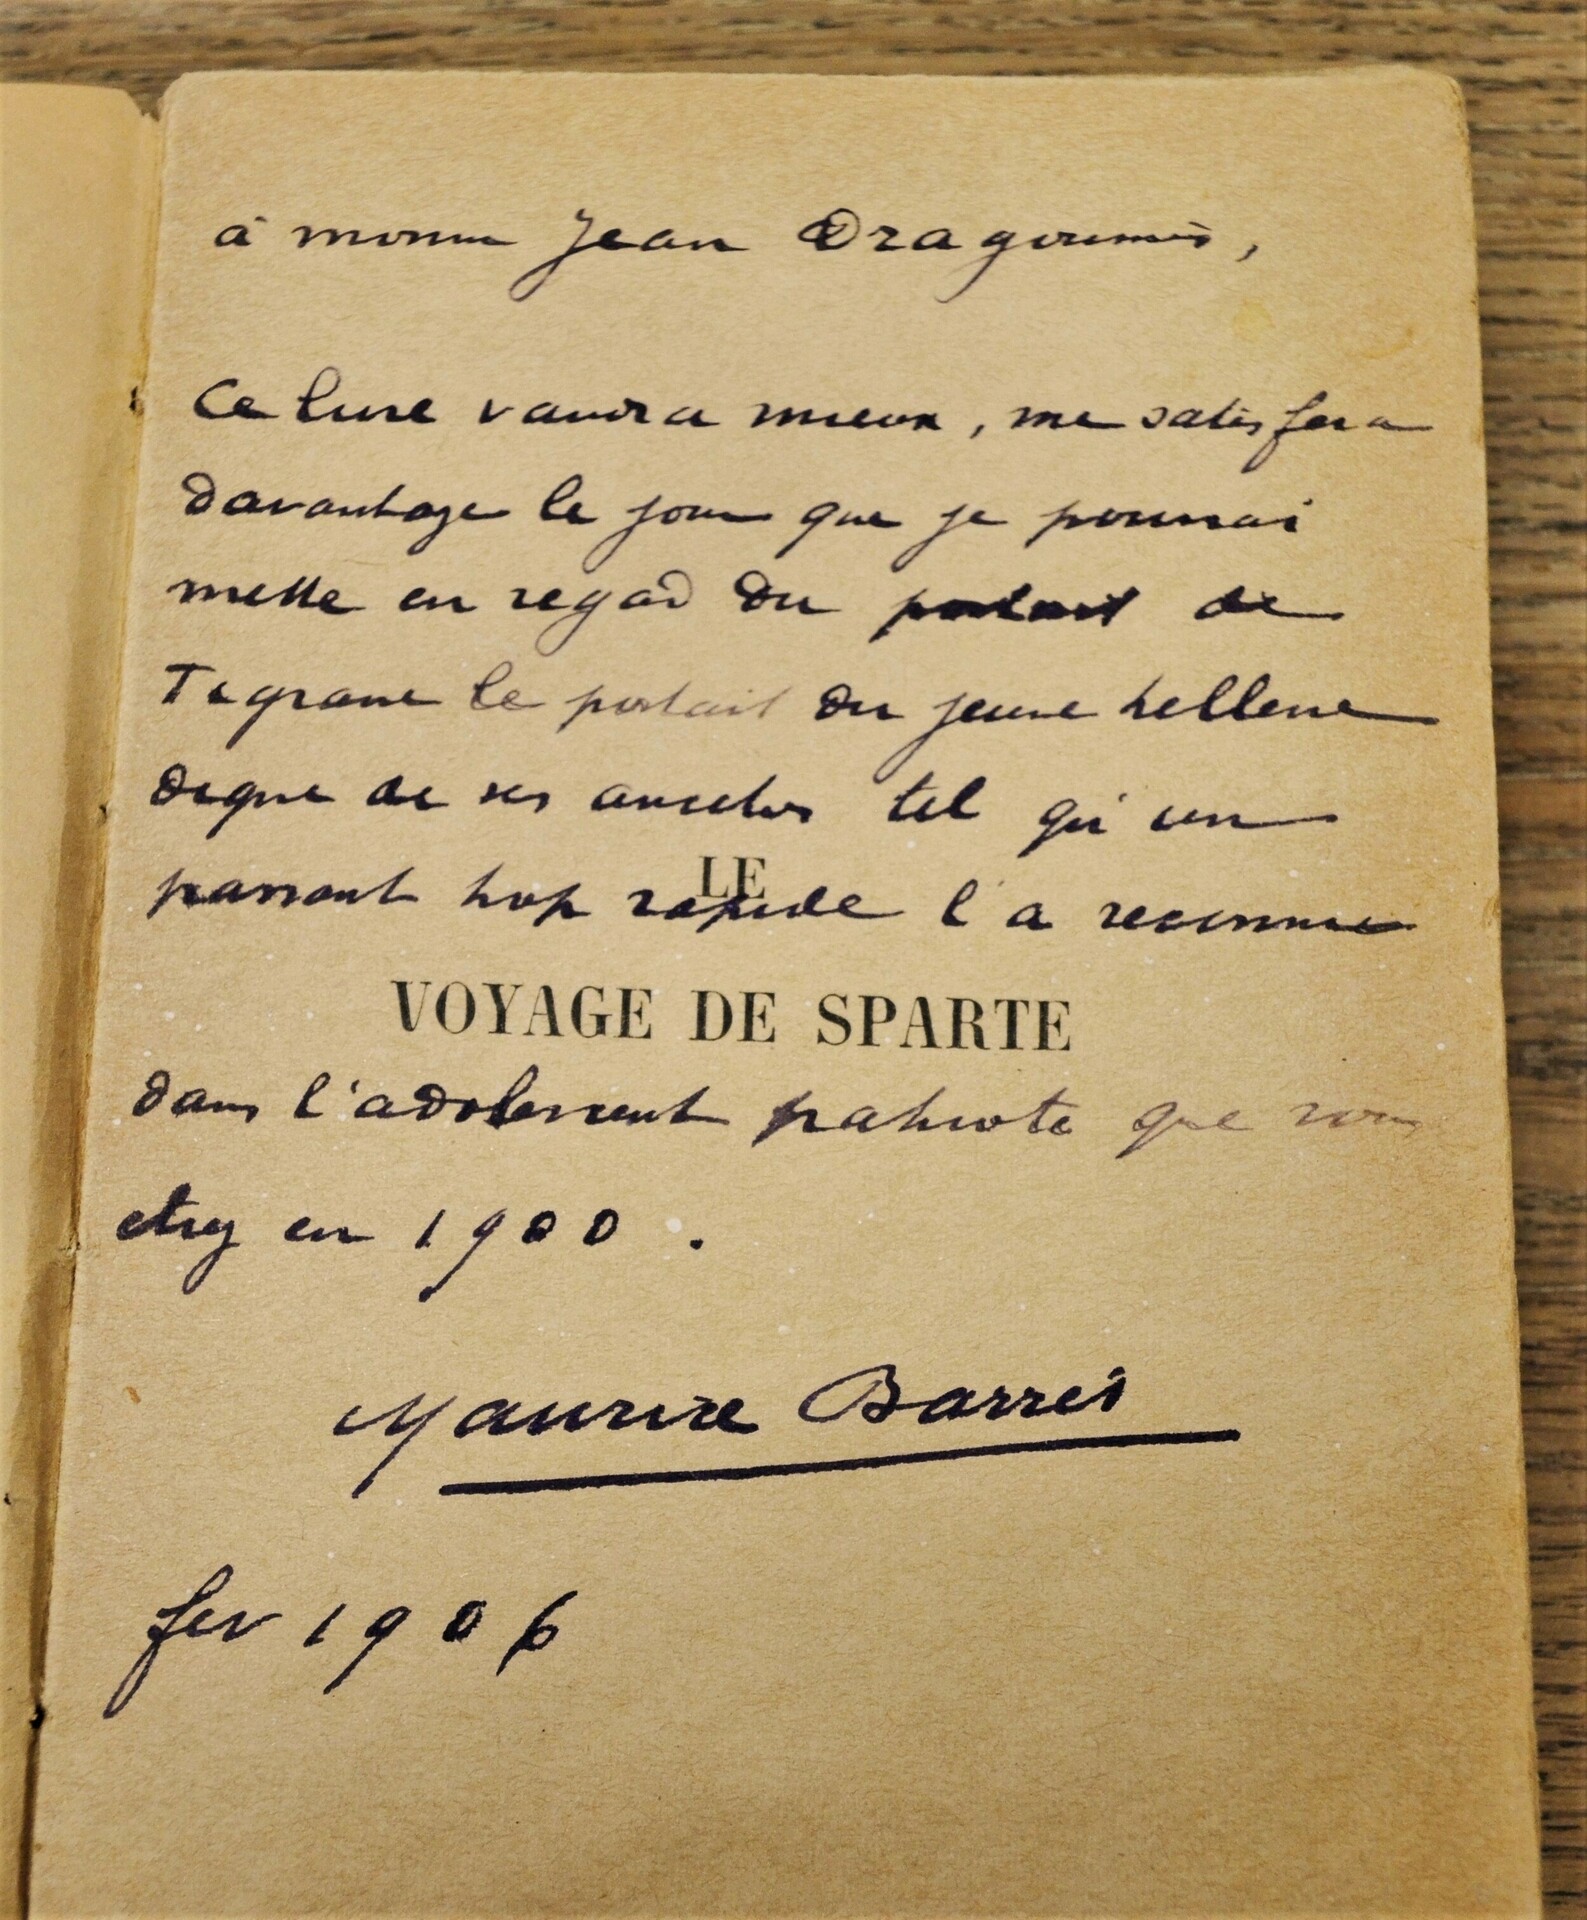 à monsieur Jean Dragoumis,
Ce livre vaudra mieux, me satisfera
davantage le jour que je pourrai
mettre en regard du portrait de
Tigrane le portrait du jeune hellene
digne de ses ancetres tel qu'un
LE
passant trop rapide l'a reconnu
VOYAGE DE SPARTE
dans l'adolescent patriote que vous
etiez en 1900.
Maurice Barrès
fev 1906